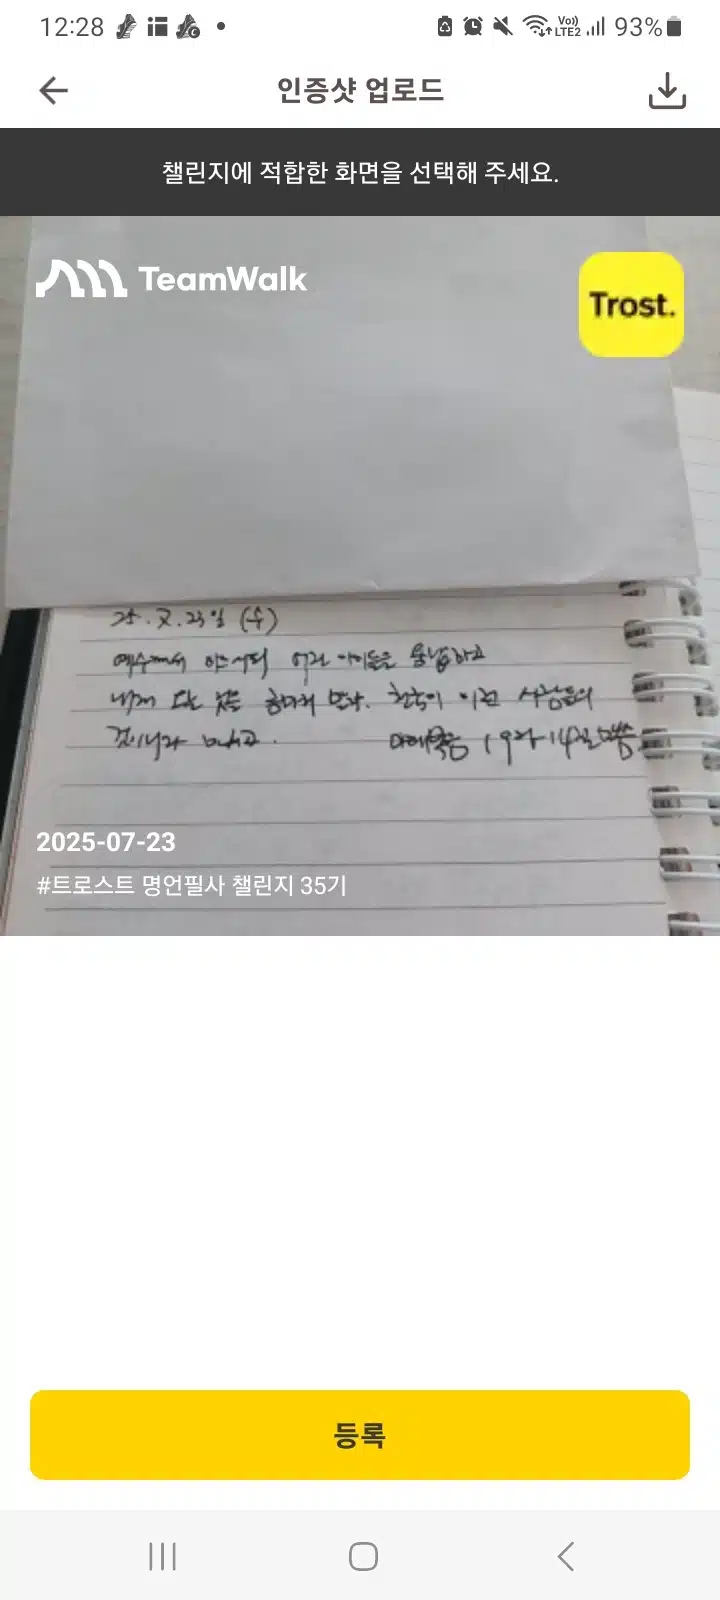 12:28
Vo))
LTE2
93%
인증샷 업로드
챌린지에 적합한 화면을 선택해 주세요.
TeamWalk
Trost.
25. 7. 23일 (수)
예수께서 이르시되 어린 아이들을 용납하고
내게 오는 것을 금하지 말라. 천국이 이런 사람들의
것이니라 하시고. 마태복음 19장 14절 말씀.
2025-07-23
#트로스트 명언필사 챌린지 35기
등록